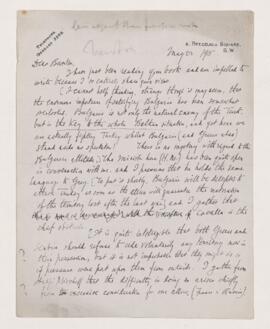 TELEPHONE
REDCLIFFE SQUARE,
S.W.
May 21 1915
Dear Buxton,
I have just been reading your book and am impelled to
write because I so entirely share your view.
I cannot help thinking, strange though it may seem, that
the enormous importance of satisfying Bulgaria has been somewhat
overlooked. Bulgaria is not only the natural enemy of the Turk,
but is the key to the whole Balkan situation, and yet here we
are actually fighting Turkey whilst Bulgaria (and Greece also)
stand aside as spectators! There is no mystery with regard to the
Bulgarian attitude. The minister has been quite open
in conversation with me, and I presume that he holds the same
language to Grey. To put it shortly, Bulgaria will be prepared to
attack Turkey as soon as the allies will guarantee the restoration
of the territory lost after the last war; and I gather that
Cavalla is the
chief obstacle.
It is quite intelligible that both Greece and
Serbia should refuse to cede voluntarily any territory now in
their possession, but it is not impossible that they might do so
if pressure were put upon them from outside. I gather from
that the difficulty in doing so arises chiefly
from excessive consideration for our allies